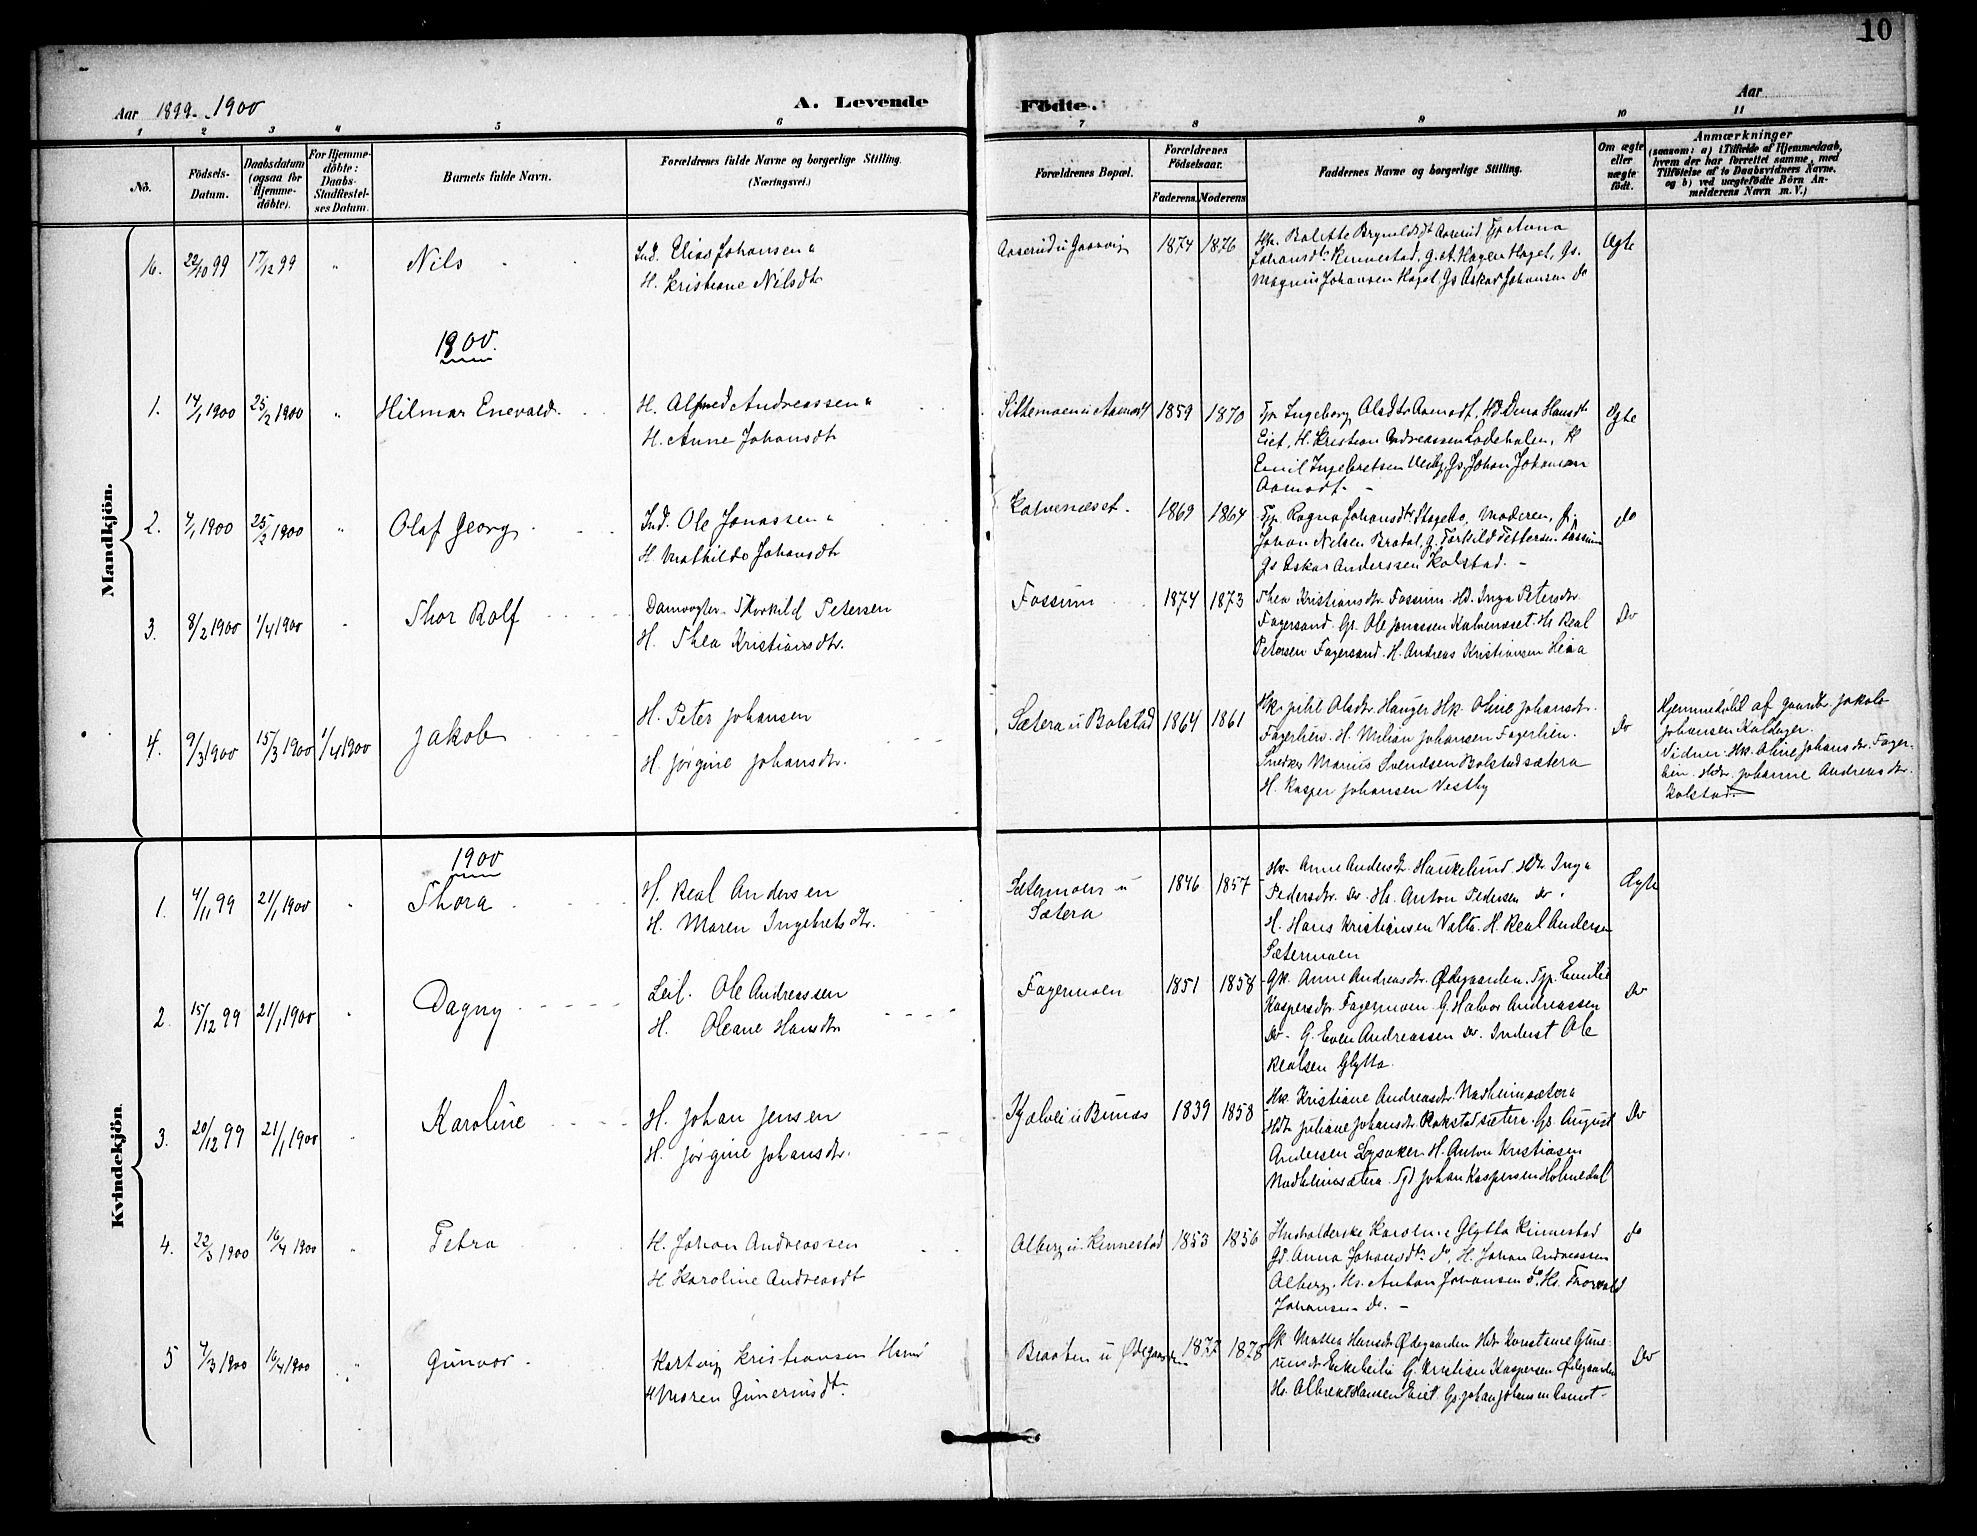 10
Aar 1899-1900
A. Levende Födte.
Aar
1 2 3 4 5 6 7 8 9 10 11
No.
Födsels-Datum.
Daabsdatum (ogsaa for Hjemme-döbte).
For Hjemme-döbte: Daabs-Stadfæstel-ses Datum.
Barnets fulde Navn.
Forældrenes fulde Navne og borgerlige Stilling.
(Næringsvei.)
Forældrenes Bopæl.
Forældrenes Födselsaar.
Faderens. Moderens.
Faddernes Navne og borgerlige Stilling.
Om ægte eller uægte födt.
Anmærkninger
(saasom: a) i Tilfælde af Hjemmedaab,
hvem der har forrettet samme, med
Tilföielse af to Daabsvidners Navne,
og b) ved uægtefödte Börn An-
melderens Navn m. V.)
Mandkjön.
16. 22/10 99 17/12 99 " Nils
Ind. Elias Johansen
H. Kristiane Nilsdtr
1874 1876
Johansdtr. Kinnestad, G. A. Hagen Haget, Gs.
Magnus Johansen Haget Gs Askar Johansen do
Ægte
1900.
1. 14/1 1900 25/2 1900 " Hilmar Enevald.
H. Alfred Andreassen
H. Anne Johansdtr
1859 1870
Tp. Ingeborg Olsdtr Aamodt, Hd. Dina Hansdtr
Eiet, H. Kristian Andreassen
Emil Ingebretsen Gs. Johan Johansen
Aamodt. -
Ægte
2. 4/1 1900 25/2 1900 " Olaf Georg
Ind. Ole Jonassen
H. Mathilde Johansdtr
Kalvenæset. 1869 1864
Tp. Ragna Johansdtr. Moderen,
Johan Nilsen
Gs Askar Anderssen Kolstad. -
do
3. 8/2 1900 1/4 1900 " Thor Rolf
Damvogter. Thorkild Petersen
H. Thea Kristiansdtr.
Fossum 1874 1873
Thea Kristiansdtr. Fossum. Hd. Inga Petersdtr.
Fagersand. Gs. Ole Jonassen Kalvenæset. Hs Real
Petersen Fagersand. H. Andreas Kristiansen
Do
4. 9/3 1900 15/3 1900 1/4 1900 Jakob
H. Peter Johansen
H. Jørgine Johansdtr.
Sætera u Bolstad 1864 1861
Olsdtr. Hauger Hk. Oline Johansdtr.
Fagerlien. H. Milian Johansen Fagerlien.
Snedker Marius Svendsen Bolstadsætera
H. Kasper Johansen Vestby
Do
Hjemmedøbt af gaardbr. Jakob
Johansen
Vidner: Hk. Oline Johansdtr. Fager-
lien. Hdr. Johanne Andreasdtr.
Kolstad.
Kvindekjön.
1900
1. 4/11 99 21/1 1900 " Thora
H. Real Andersen
H. Maren Ingebretsdtr.
Sætermoen u Sætera
1846 1857
Hk. Anne Andersdtr. Haukelund. Hdr Inga
Pedersdtr. Do. Hs. Anton Pedersen Do.
H. Hans Kristiansen Valta. H. Real Andersen
Sætermoen
Ægte
2. 15/12 99 21/1 1900 " Dagny
Leil. Ole Andreassen
H. Oleane Hansdtr
Fagermoen 1851 1858
Gk. Anne Andreasdtr. Ødegaarden. Tp. Emilie
Kaspersdtr. Fagermoen. G. Halvor Andreassen
Do. G. Even Andreassen Do. Inderst Ole
Realsen Glytta.
Do
3. 20/12 99 21/1 1900 " Karoline
H. Johan Jensen
H. Jørgine Johansdtr.
1839 1858
Hk. Kristiane Andreasdtr. Nadheimsætera
Hdr Juliane Johansdtr. Rakstadsætera. Gs. August
Andersen Lysaker. H. Anton Kristiansen
Nadheimsætera. Johan Kaspersen Holmedal
Do
4. 22/3 1900 16/4 1900 " Petra
H. Johan Andreassen
H Karoline Andreasdtr
Alberg u. Kinnestad 1853 1856
Husholderske Karoline Glytta Kinnestad
Gd. Anna Johansdtr. do, H. Johan Andreassen
Alberg, Hs. Anton Johansen do. Hs. Thorvald
Johansen do. -
do
5 4/3 1900 16/4 1900 " Gunvor
Hartvig Kristiansen
H Maren Guneriusdtr.
Braaten u Ødegaarden 1877 1878
Gk. Mathea Hansdtr Ødegaarden Hdr Konstanse Gune-
riusdtr G. Kristian Kaspersen Ødegaarden
Hs. Albrekt Hansen Eiet. Gs. Johan Johansen Aamot.
Do